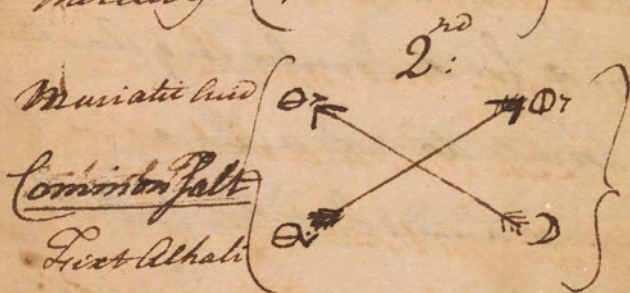 2nd:
Muriatic Acid
Common Salt
Fixt Alkali